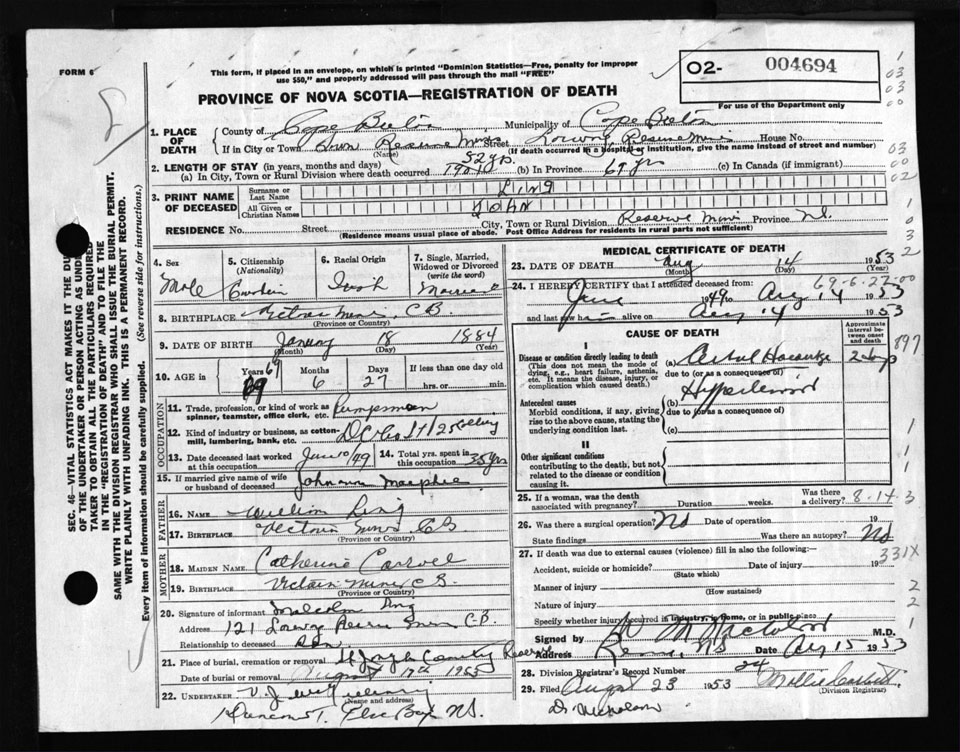 FORM 6
This form, if placed in an envelope, on which is printed "Dominion Statistics—Free, penalty for improper
use $50," and properly addressed will pass through the mail "FREE"
PROVINCE OF NOVA SCOTIA—REGISTRATION OF DEATH
02- 004694
For use of the Department only
SEC. 46—VITAL STATISTICS ACT MAKES IT THE DU
OF THE UNDERTAKER OR PERSON ACTING AS UNDE
TAKER TO OBTAIN ALL THE PARTICULARS REQUIRED
IN THE "REGISTRATION OF DEATH" AND TO FILE THE
SAME WITH THE DIVISION REGISTRAR WHO SHALL ISSUE THE BURIAL PERMIT.
WRITE PLAINLY WITH UNFADING INK. THIS IS A PERMANENT RECORD.
Every item of information should be carefully supplied. (See reverse side for instructions.)
1. PLACE OF DEATH County of Cape Breton Municipality of Cape Breton
If in City or Town Reserve Mines Street Reserve Mines House No.
(Name) (If death occurred in a hospital or institution, give the name instead of street and number)
2. LENGTH OF STAY (in years, months and days) 52 yrs.
(a) In City, Town or Rural Division where death occurred 1901 (b) In Province 69 yrs (c) In Canada (if immigrant)
3. PRINT NAME OF DECEASED Surname or Last Name LING
All Given or Christian Names JOHN
RESIDENCE No. Street City, Town or Rural Division Reserve Mines Province N.S.
(Residence means usual place of abode. Post Office Address for residents in rural parts not sufficient)
4. Sex Male
5. Citizenship (Nationality) Canadian
6. Racial Origin Irish
7. Single, Married, Widowed or Divorced (write the word) Married
8. BIRTHPLACE Victoria Mines, C.B.
(Province or Country)
9. DATE OF BIRTH January 18 1884
(Month) (Day) (Year)
10. AGE in Years 69 Months 6 Days 27 If less than one day
hrs. or min.
OCCUPATION
11. Trade, profession, or kind of work as spinner, teamster, office clerk, etc. Pumpsman
12. Kind of industry or business, as cotton-mill, lumbering, bank, etc. Colliery
13. Date deceased last worked at this occupation June 10/49 14. Total yrs. spent in this occupation 35 yrs
15. If married give name of wife or husband of deceased Johnann Macphee
FATHER
16. NAME William Ling
17. BIRTHPLACE Victoria Mines C.B.
(Province or Country)
MOTHER
18. MAIDEN NAME Catherine
19. BIRTHPLACE Victoria Mines C.B.
(Province or Country)
20. Signature of informant Malcolm Ling
Address 121 Reserve Mines C.B.
Relationship to deceased Son
21. Place of burial, cremation or removal St Joseph Cemetery Reserve
Date of burial or removal August 17th 1953
22. UNDERTAKER V. J.
(Name and address)
N.S.
MEDICAL CERTIFICATE OF DEATH
23. DATE OF DEATH Aug 14 1953
(Month) (Day) (Year)
24. I HEREBY CERTIFY that I attended deceased from: 69-6-27
June 1949 to Aug 14 1953
and last saw h alive on Aug 14 1953
CAUSE OF DEATH
Approximate interval between onset and death
I
Disease or condition directly leading to death
(This does not mean the mode of dying, e.g., heart failure, asthenia, etc. It means the disease, injury, or complication which caused death.)
(a) Cerebral Haemorrhage 2 days
due to (or as a consequence of)
Antecedent causes
Morbid conditions, if any, giving rise to the above cause, stating the underlying condition last.
(b) Hypertension
due to (or as a consequence of)
(c)
II
Other significant conditions
contributing to the death, but not related to the disease or condition causing it.
897
25. If a woman, was the death associated with pregnancy? Duration weeks. Was there a delivery? 8-14-3
26. Was there a surgical operation? No Date of operation 19
State findings Was there an autopsy? No
331X
27. If death was due to external causes (violence) fill in also the following:—
Accident, suicide or homicide? Date of injury 19
(State which)
Manner of injury
(How sustained)
Nature of injury
Specify whether injury occurred in industry, in home, or in public place
Signed by M.D.
Address Reserve, NS Date Aug 15 1953
28. Division Registrar's Record Number 24
29. Filed August 23 1953 Mollie
(Division Registrar)
Dr Nicholson